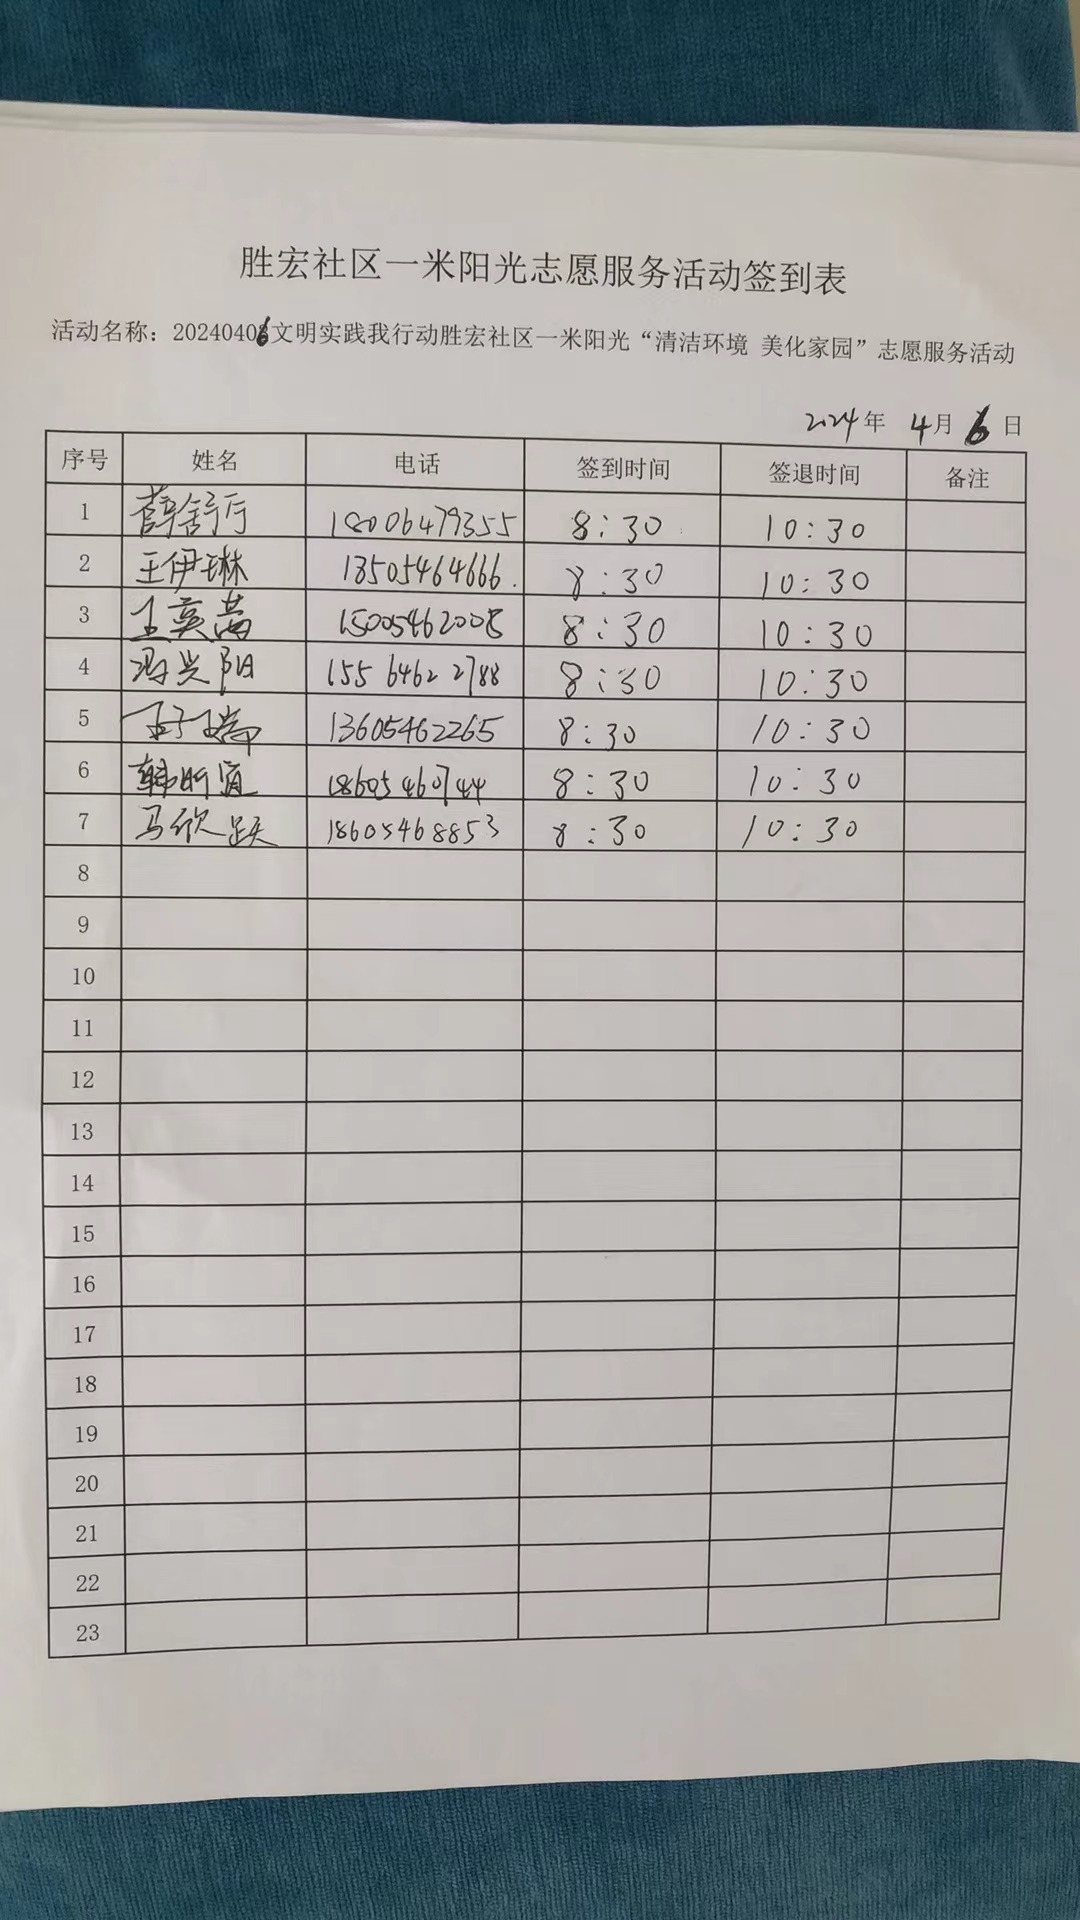 胜宏社区一米阳光志愿服务活动签到表
活动名称：20240406文明实践我行动胜宏社区一米阳光“清洁环境 美化家园”志愿服务活动
2024年 4月 6日
序号 姓名 电话 签到时间 签退时间 备注
1 薛舒 18006479355 8:30 10:30
2 王伊琳 18505464666. 8:30 10:30
3 王奕 15005462008 8:30 10:30
4 兴阳 155 6462 2788 8:30 10:30
5 子瑞 13605462265 8:30 10:30
6 韩昕 18605460744 8:30 10:30
7 马欣跃 18605468853 8:30 10:30
8
9
10
11
12
13
14
15
16
17
18
19
20
21
22
23